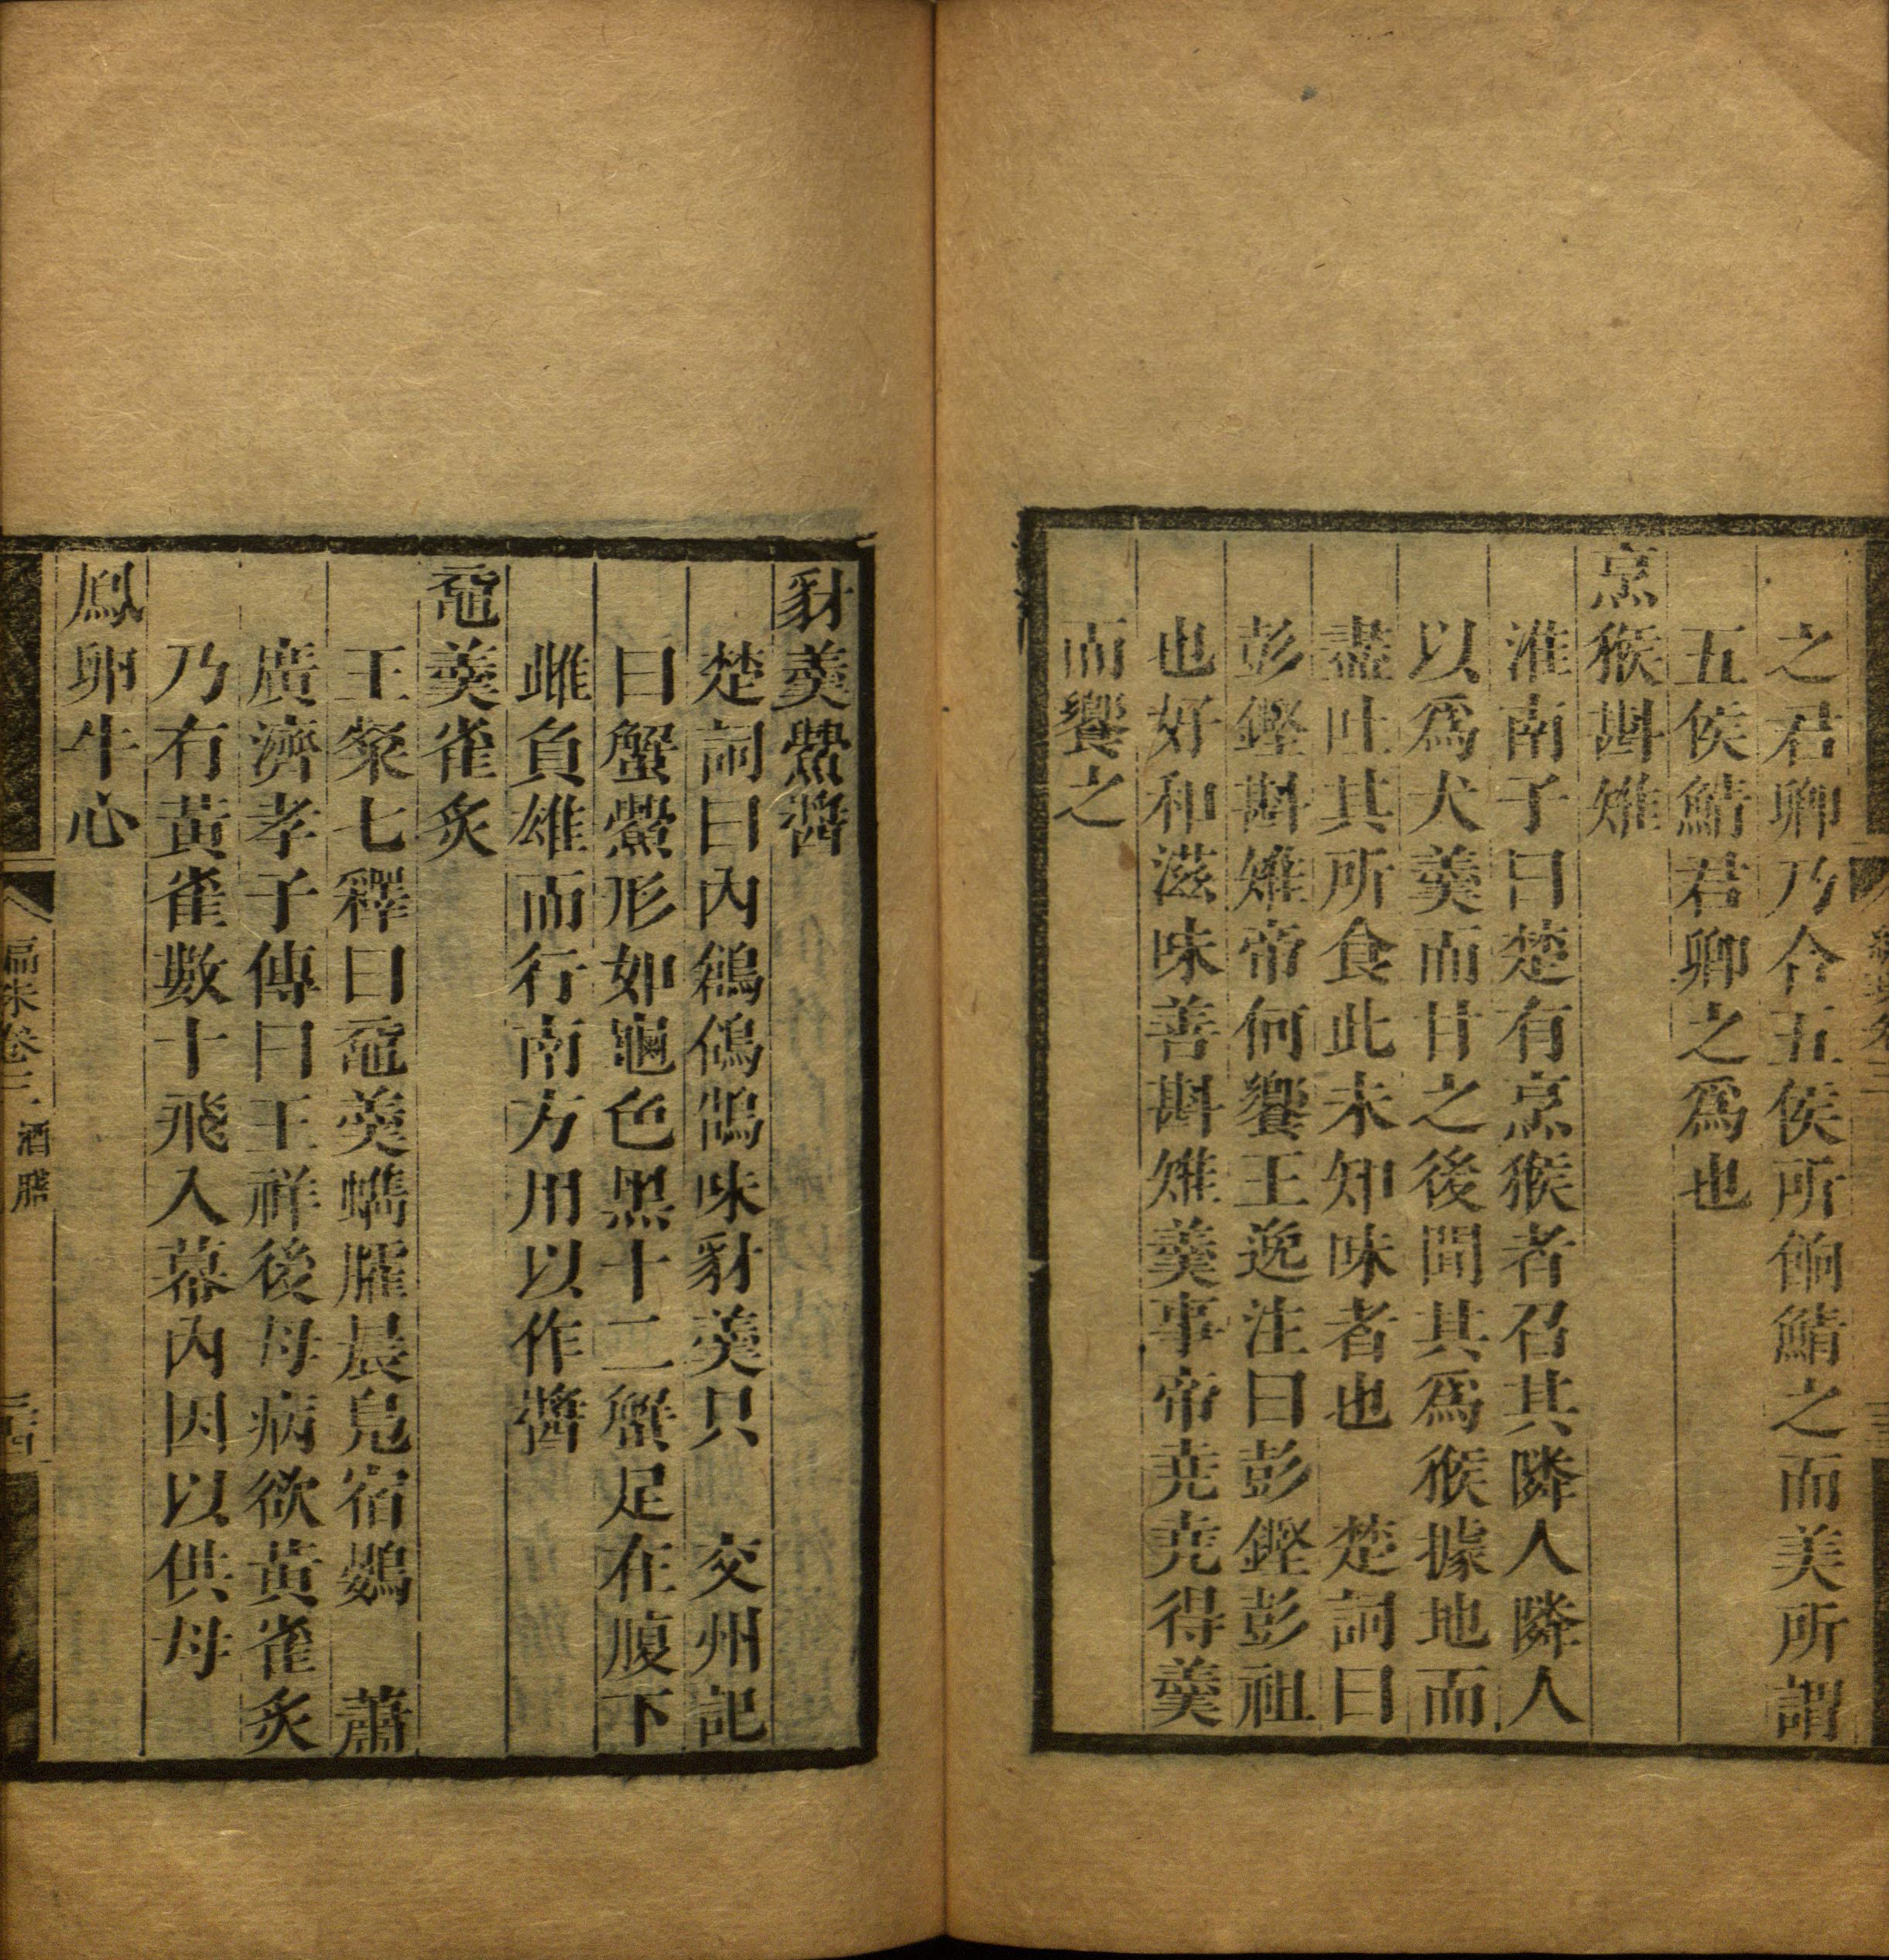 之君卿乃合五侯所餉鯖之而美所謂
五侯鯖君卿之爲也
烹猴斟雉
淮南子曰楚有烹猴者召其隣人隣人
以爲犬羹而甘之後聞其爲猴據地而
盡吐其所食此未知味者也　楚詞曰
彭鏗斟雉帝何饗王逸注曰彭鏗彭祖
也好和滋味善斟雉羹事帝尭尭得羹
而饗之
豺羹鱟醬
楚詞曰內鶬鴿鵠味豺羹只　交州記
曰蟹鱟形如龜色黑十二蟹足在腹下
雌負雄而行南方用以作醬
黿羹雀炙
王粲七釋曰黿羹蠵臛晨鳧宿鷃　蕭
廣濟孝子傳曰王祥後母病欲黃雀炙
乃有黃雀數十飛入幕內因以供母
鳳卵牛心
編珠卷三 酒膳